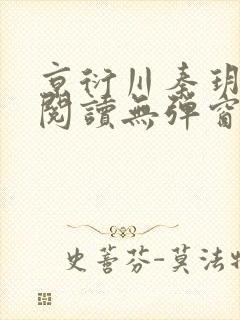 京衍川秦玥
閱讀無彈窗
史蒼芬-莫法特